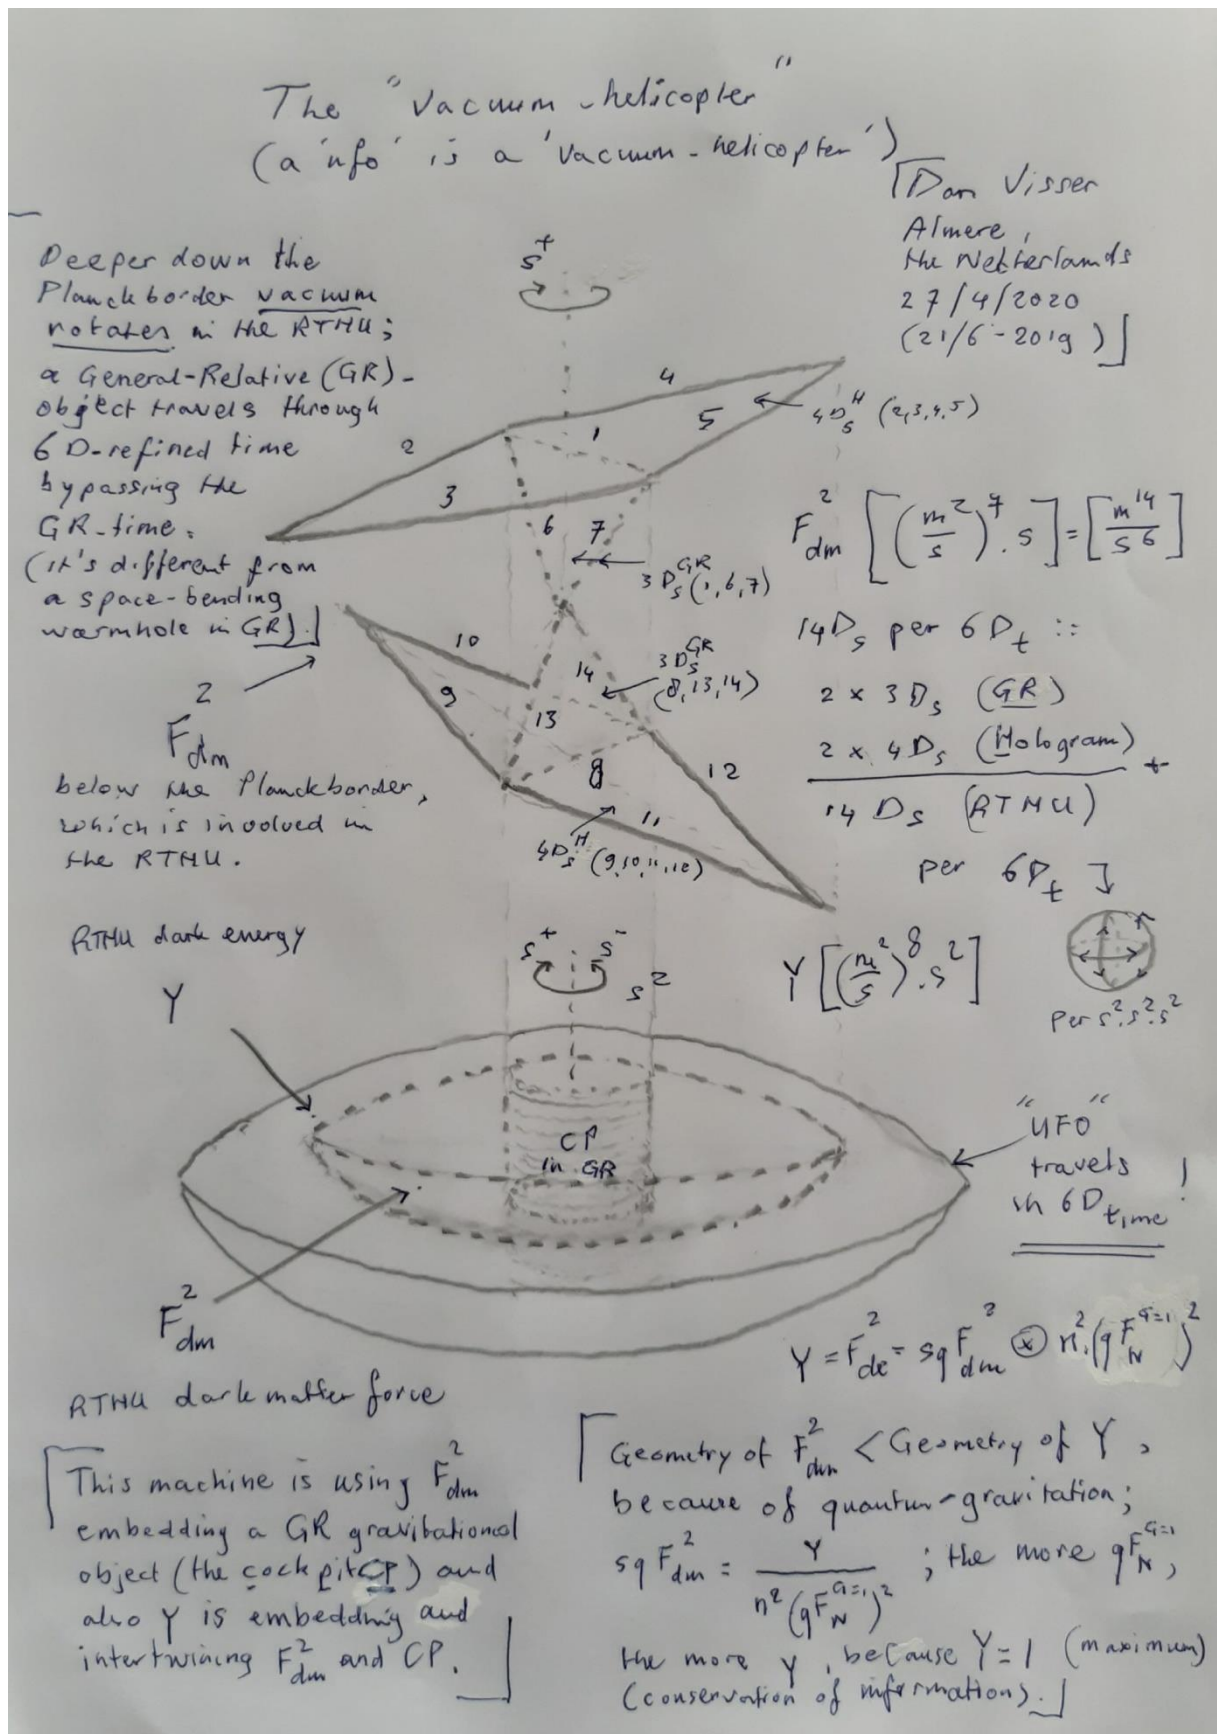 The "vacuum-helicopter"
(a 'ufo' is a 'vacuum-helicopter')
[Dan Visser
Almere,
the Netherlands
27/4/2020
(21/6-2019)]
Deeper down the
Planckborder vacuum
rotates in the RTHU;
a General-Relative (GR)-
object travels through
6D-refined time
bypassing the
GR-time.
(it's different from
a space-bending
warmhole in GR).]
F²dm
below the Planckborder,
which is involved in
the RTHU.
s⁺
4
2
1
5
3
6
7
4Ds^H (2,3,4,5)
3Ds^GR (1,6,7)
10
9
14
13
8
12
11
3Ds^GR
(8,13,14)
4Ds^H (9,10,11,12)
F²dm [(m²/s)⁷.s]=[m¹⁴/s⁶]
14Ds per 6Dt ::
2 x 3Ds (GR)
2 x 4Ds (Hologram)
+
14Ds (RTHU)
per 6Dt
Y[(m²/s)⁸.s²]
per s².s².s²
RTHU dark energy
Y
s⁺ s⁻
s²
CP
in GR
"UFO"
travels
in 6Dtime!
F²dm
RTHU dark matter force
Y = F²de = sqF²dm ⊗ n².(qF_N^G=1)²
[This machine is using F²dm
embedding a GR gravitational
object (the cockpit CP) and
also Y is embedding and
intertwining F²dm and CP.]
[Geometry of F²dm < Geometry of Y,
because of quantum-gravitation;
sqF²dm = Y/n²(qF_N^G=1)² ; the more qF_N^G=1,
the more Y, because Y=1 (maximum)
(conservation of information).]